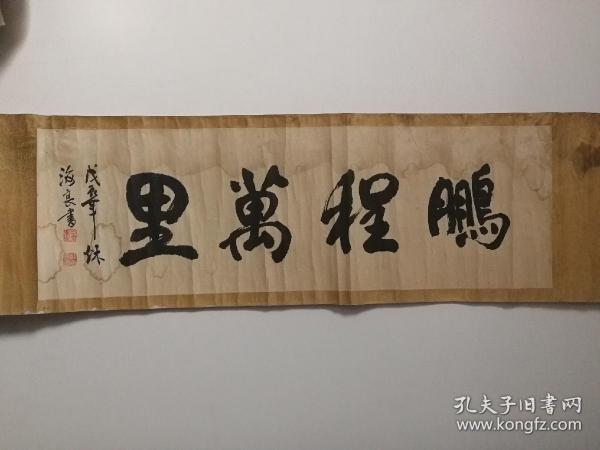 鵬程萬里
戊辰年秌
海良書
孔夫子旧书网
www.kongfz.com